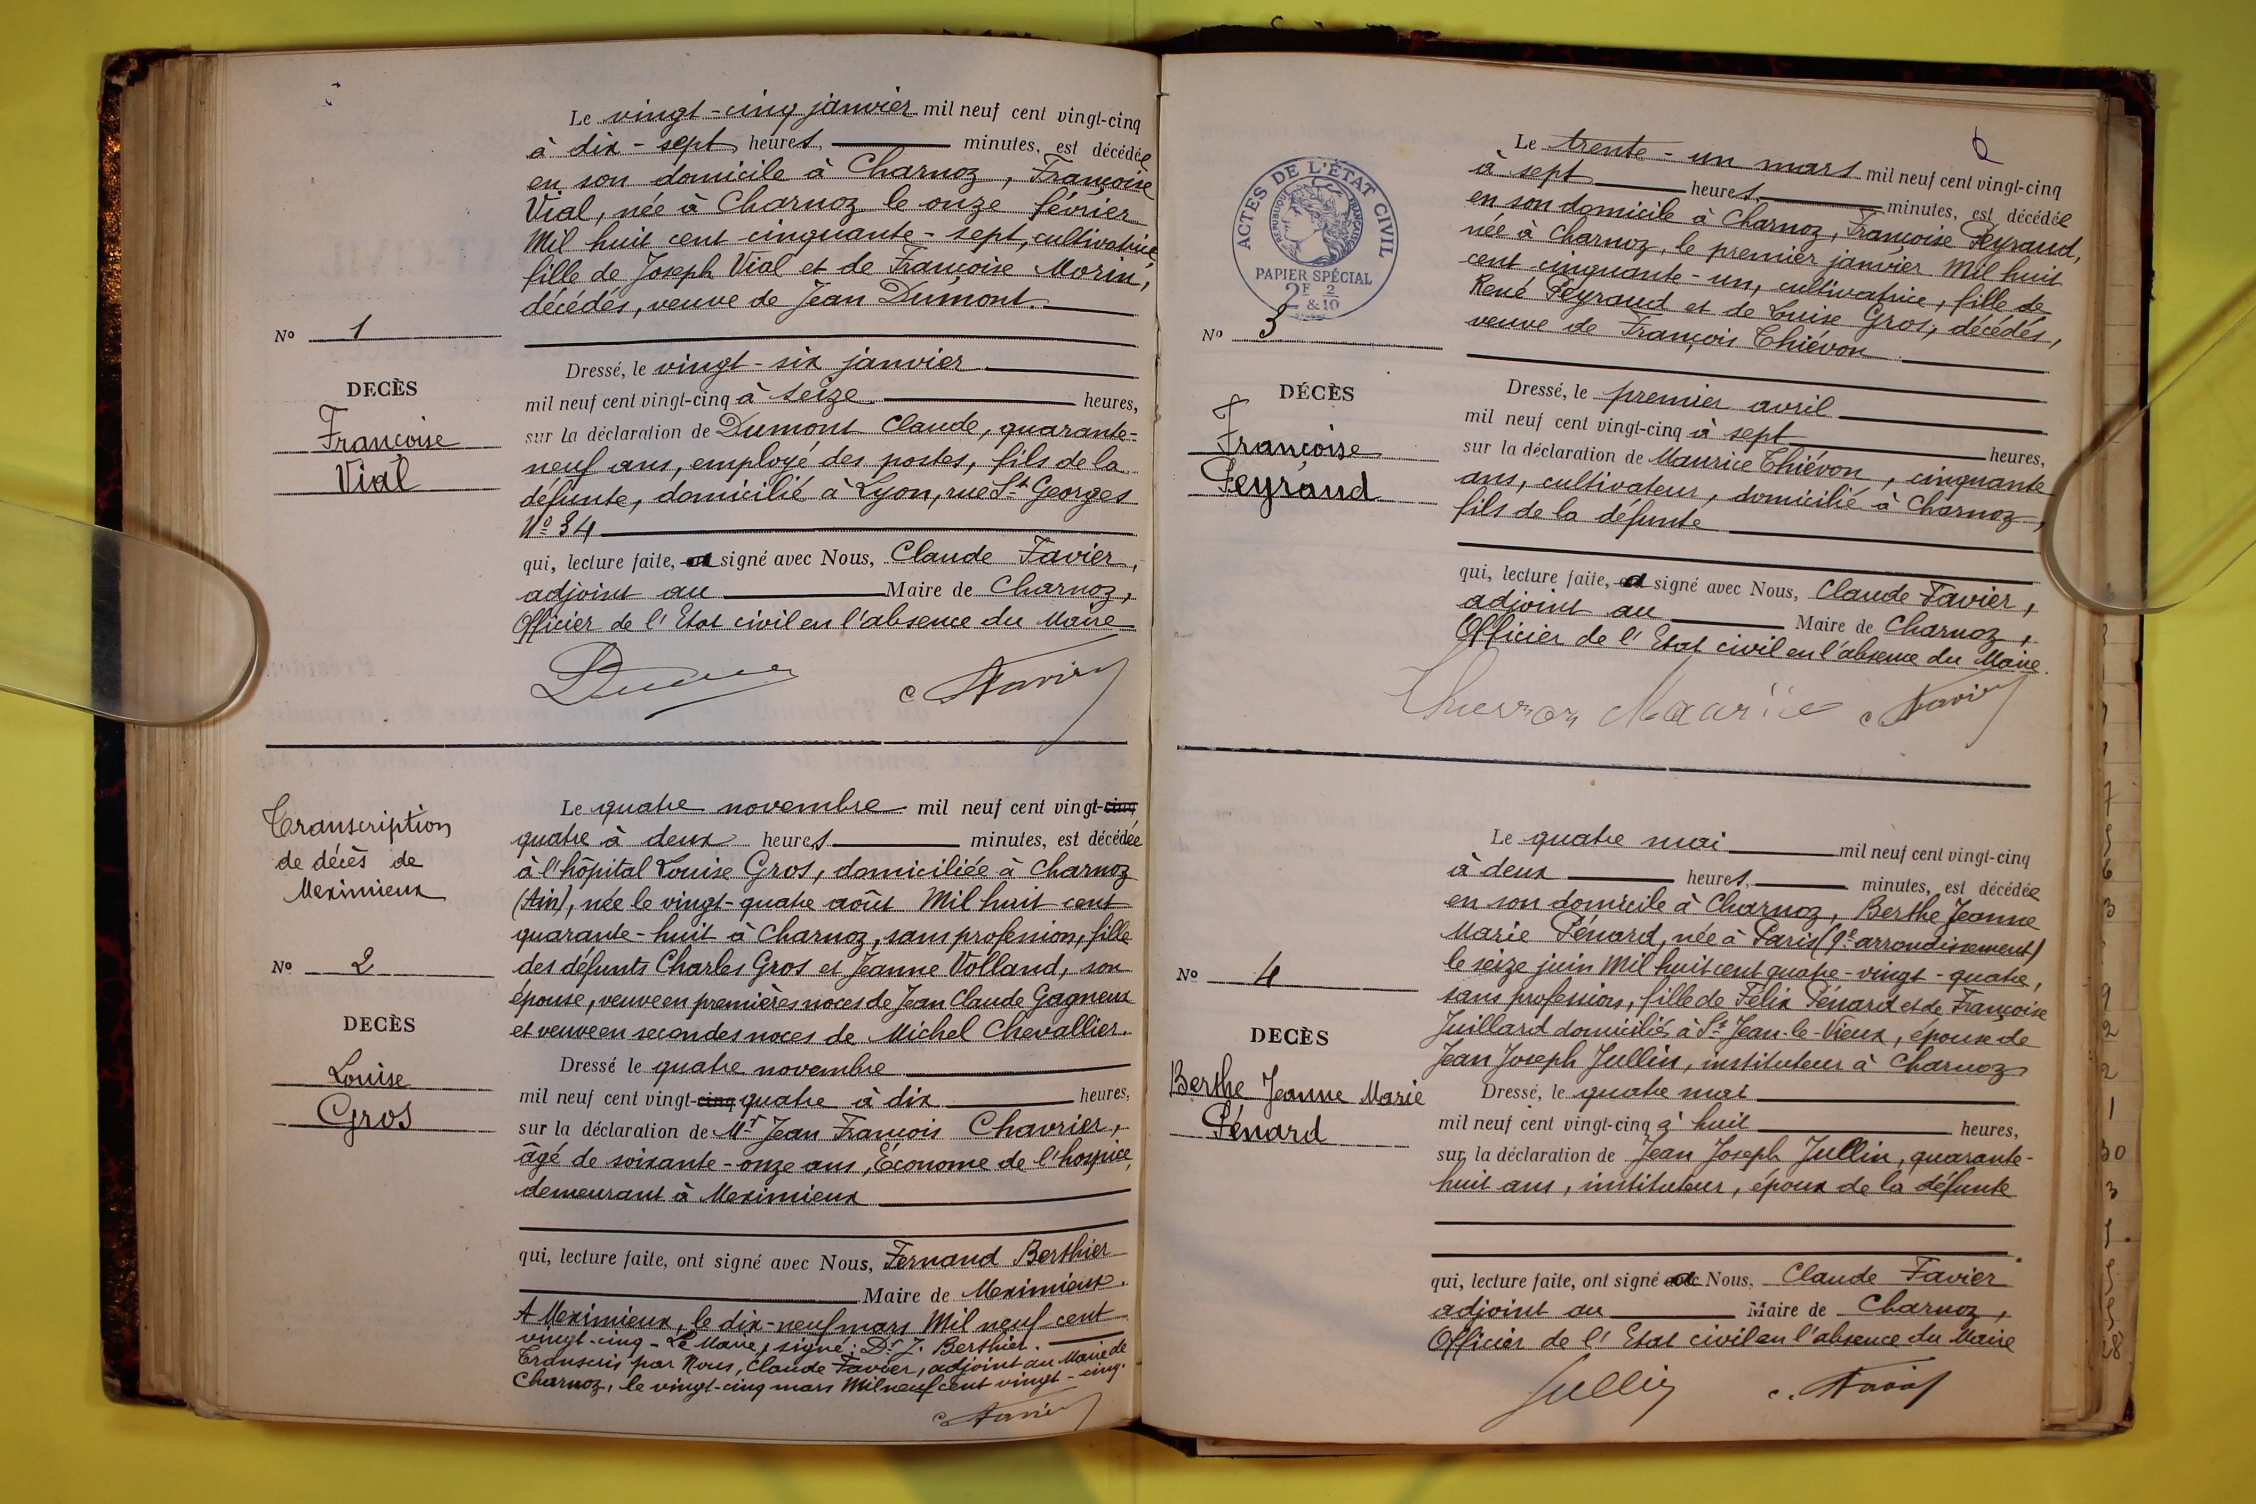 Le vingt-cinq janvier mil neuf cent vingt-cinq
à dix-sept heures, minutes, est décédée
en son domicile à Charnoz, Françoise
Vial, née à Charnoz le onze février
Mil huit cent cinquante-sept, cultivatrice,
fille de Joseph Vial et de Françoise Morin,
décédés, veuve de Jean Dumont.
No 1
DECÈS
Françoise
Vial
Dressé, le vingt-six janvier
mil neuf cent vingt-cinq à seize heures,
sur la déclaration de Dumont Claude, quarante-
neuf ans, employé des postes, fils de la
défunte, domicilié à Lyon, rue St Georges
No 34
qui, lecture faite, a signé avec Nous, Claude Favier,
adjoint au Maire de Charnoz,
Officier de l'Etat civil en l'absence du Maire
C Favier
Transcription
de décès de
Meximieux
No 2
DECÈS
Louise
Gros
Le quatre novembre mil neuf cent vingt-cinq
quatre à deux heures minutes, est décédée
à l'hôpital Louise Gros, domiciliée à Charnoz
(Ain), née le vingt-quatre août Mil huit cent
quarante-huit à Charnoz, sans profession, fille
des défunts Charles Gros et Jeanne Volland, son
épouse, veuve en premières noces de Jean Claude Gagneux
et veuve en secondes noces de Michel Chevallier.
Dressé le quatre novembre
mil neuf cent vingt-cinq quatre à dix heures,
sur la déclaration de Mr Jean François Chavrier,
âgé de soixante-onze ans, Économe de l'hospice,
demeurant à Meximieux
qui, lecture faite, ont signé avec Nous, Fernand Berthier
Maire de Meximieux.
A Meximieux, le dix-neuf mars Mil neuf cent
vingt-cinq - Le Maire, signé: Dr J. Berthier.
Transcris par Nous, Claude Favier, adjoint au Maire de
Charnoz, le vingt-cinq mars Mil neuf cent vingt-cinq.
C Favier
6
ACTES DE L'ÉTAT CIVIL
RÉPUBLIQUE FRANÇAISE
PAPIER SPÉCIAL
2F 2
& 10
No 3
DÉCÈS
Françoise
Peyraud
Le trente-un mars mil neuf cent vingt-cinq
à sept heures, minutes, est décédée
en son domicile à Charnoz, Françoise Peyraud,
née à Charnoz, le premier janvier Mil huit
cent cinquante-un, cultivatrice, fille de
René Peyraud et de Louise Gros, décédés,
veuve de François Thiévon
Dressé, le premier avril
mil neuf cent vingt-cinq à sept heures,
sur la déclaration de Maurice Thiévon, cinquante
ans, cultivateur, domicilié à Charnoz,
fils de la défunte
qui, lecture faite, a signé avec Nous, Claude Favier,
adjoint au Maire de Charnoz,
Officier de l'Etat civil en l'absence du Maire.
Thievon Maurice C Favier
No 4
DECÈS
Berthe Jeanne Marie
Pénard
Le quatre mai mil neuf cent vingt-cinq
à deux heures, minutes, est décédée
en son domicile à Charnoz, Berthe Jeanne
Marie Pénard, née à Paris (9e arrondissement)
le seize juin Mil huit cent quatre-vingt-quatre,
sans profession, fille de Félix Pénard et de Françoise
Juillard domiciliés à St Jean-le-Vieux, épouse de
Jean Joseph Jullin, instituteur à Charnoz
Dressé, le quatre mai
mil neuf cent vingt-cinq à huit heures,
sur la déclaration de Jean Joseph Jullin, quarante-
huit ans, instituteur, époux de la défunte
qui, lecture faite, ont signé avec Nous, Claude Favier
adjoint au Maire de Charnoz,
Officier de l'Etat civil en l'absence du Maire
Jullin C. Favier